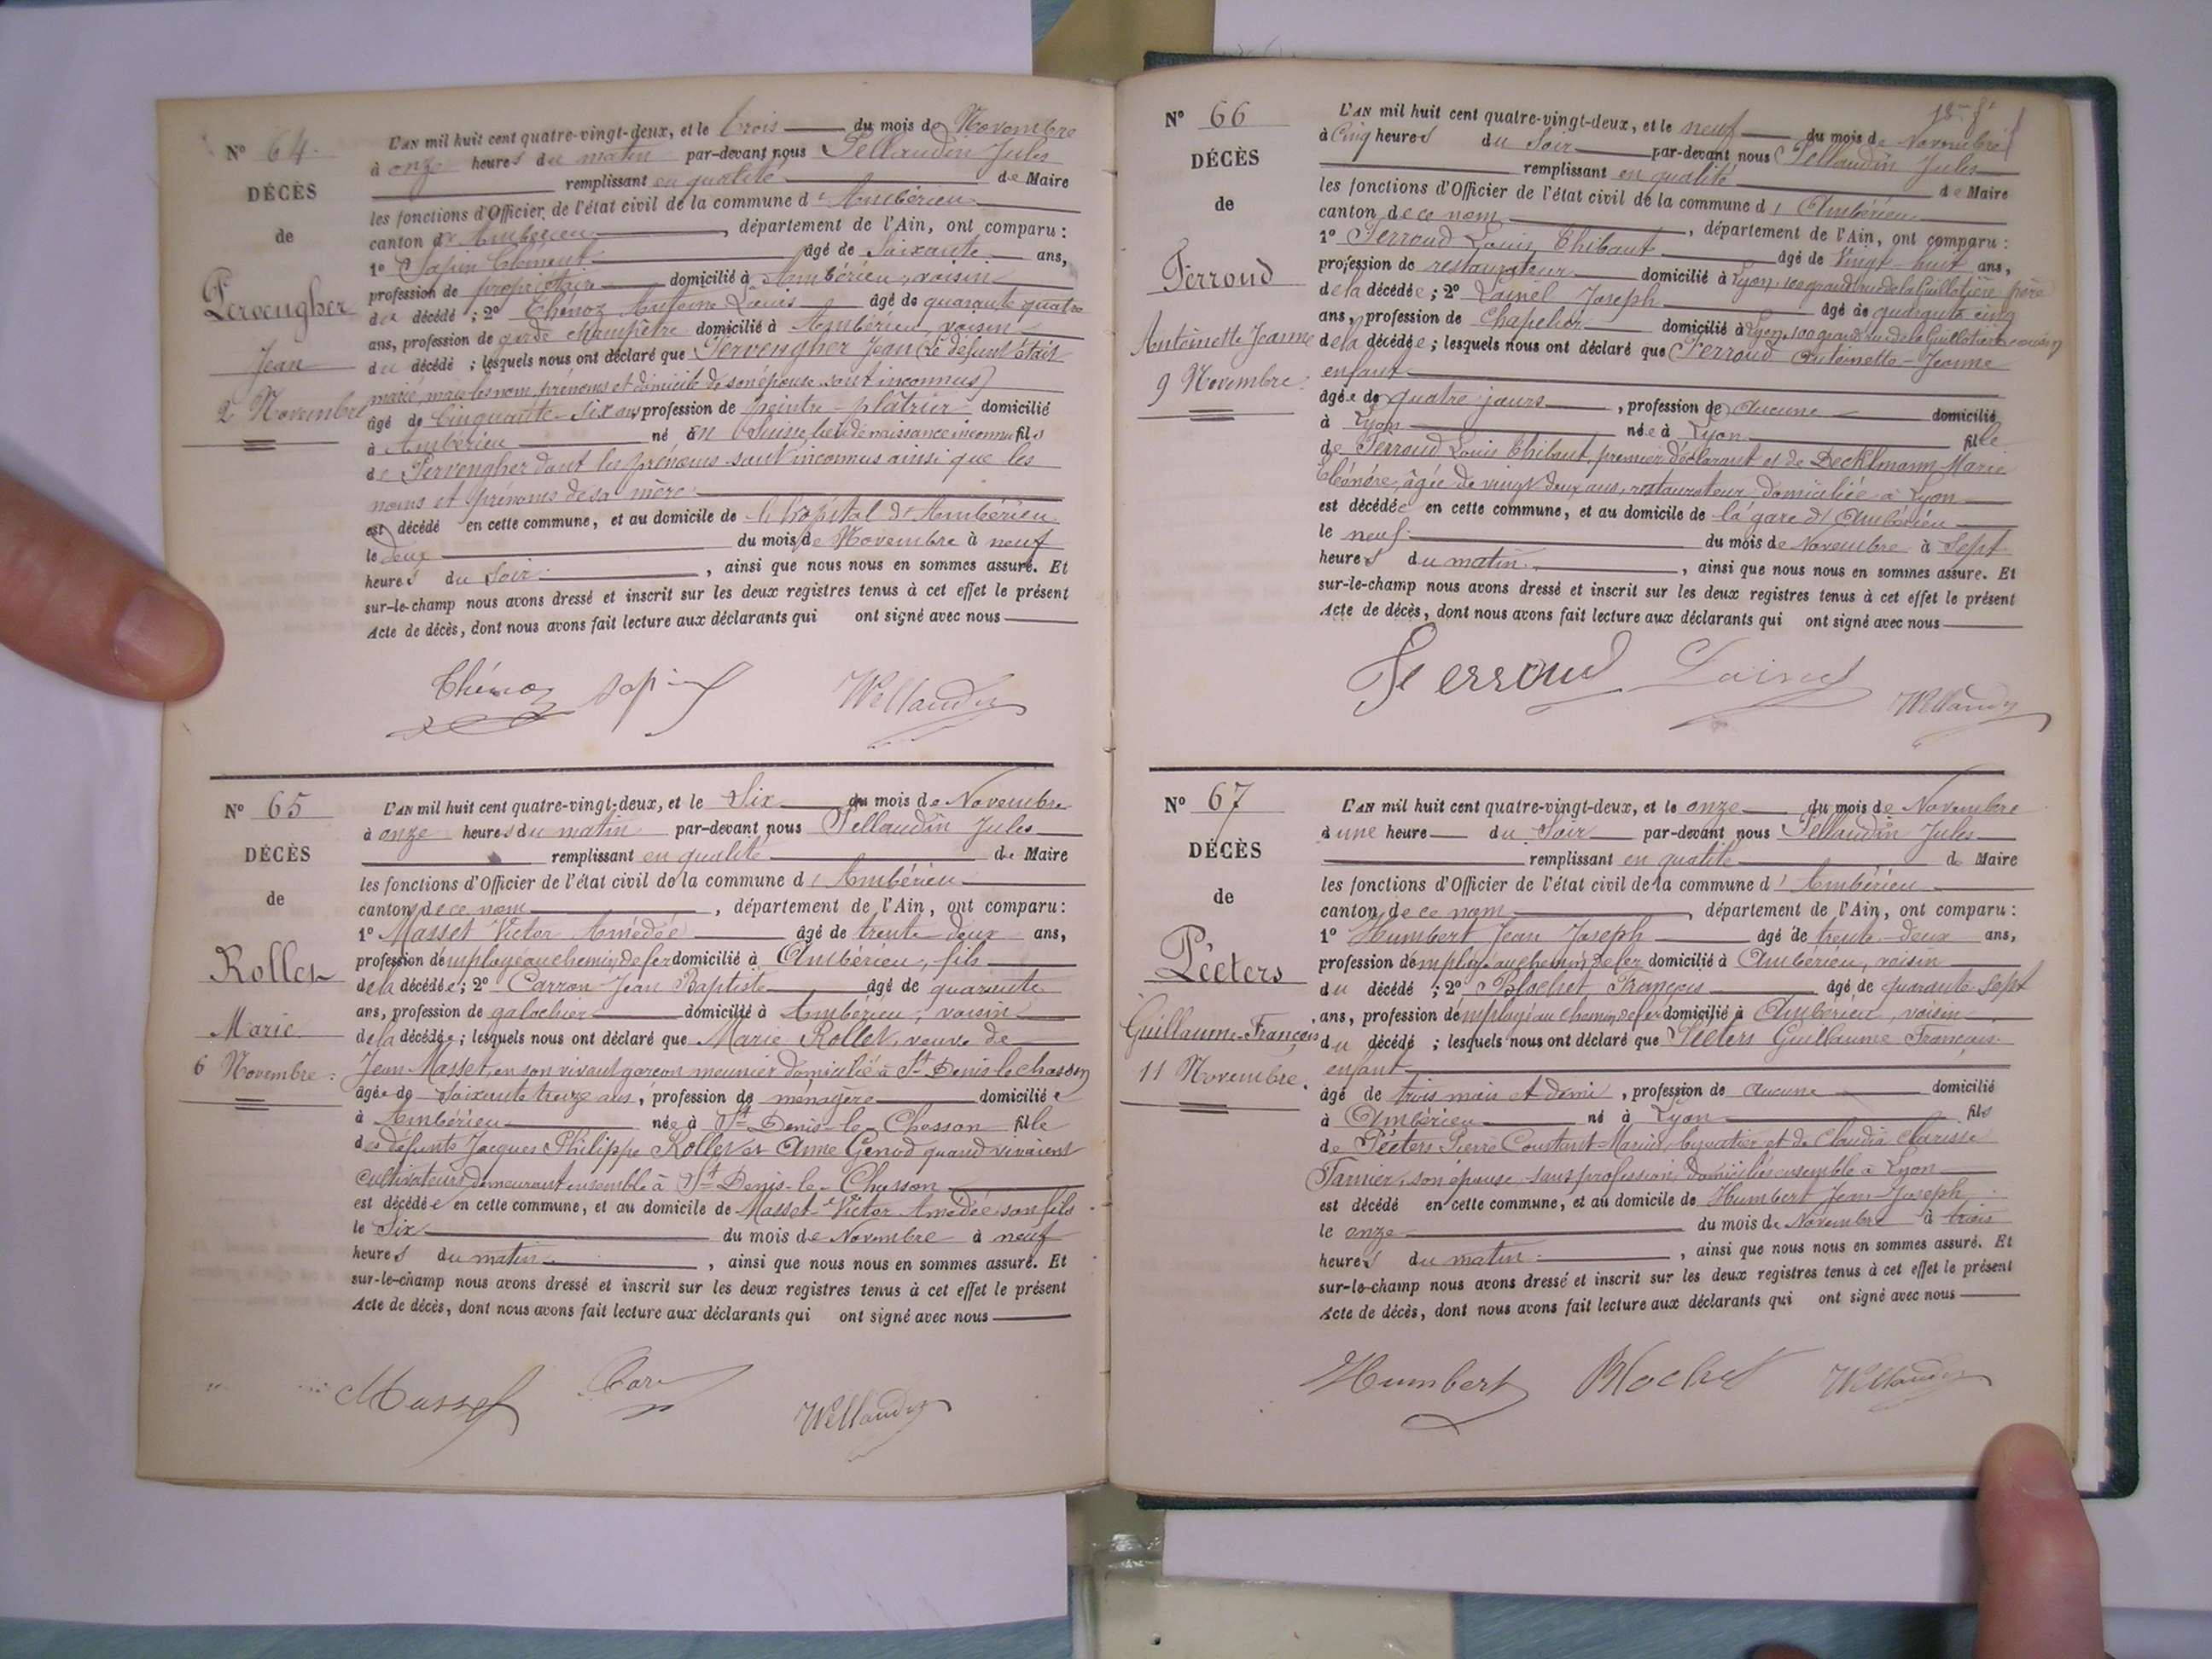 Nº 64
DÉCÈS
de
Pervengher
Jean
2 Novembre
L'AN mil huit cent quatre-vingt-deux, et le trois du mois de Novembre
à onze heures du matin par-devant nous Pellaudin Jules
remplissant en qualité de Maire
les fonctions d'Officier de l'état civil de la commune d'Ambérieu
canton d'Ambérieu, département de l'Ain, ont comparu :
1º Sapin Clément âgé de Soixante ans,
profession de propriétaire domicilié à Ambérieu, voisin
du décédé ; 2º Thénoz Antoine Louis âgé de quarante quatre
ans, profession de garde champêtre domicilié à Ambérieu, voisin
du décédé ; lesquels nous ont déclaré que Pervengher Jean (Le défunt était
marié, mais les nom, prénoms et domicile de son épouse sont inconnus)
âgé de Cinquante-six ans profession de peintre-plâtrier domicilié
à Ambérieu né en Suisse, lieu de naissance inconnu fils
de Pervengher dont les prénoms sont inconnus ainsi que les
noms et prénoms de sa mère
est décédé en cette commune, et au domicile de l'hôpital d'Ambérieu
le deux du mois de Novembre à neuf
heures du Soir, ainsi que nous nous en sommes assuré. Et
sur-le-champ nous avons dressé et inscrit sur les deux registres tenus à cet effet le présent
Acte de décès, dont nous avons fait lecture aux déclarants qui ont signé avec nous
Thénoz Sapin Pellaudin
Nº 65
DÉCÈS
de
Rollet
Marie
6 Novembre :
L'AN mil huit cent quatre-vingt-deux, et le Six du mois de Novembre
à onze heures du matin par-devant nous Pellaudin Jules
remplissant en qualité de Maire
les fonctions d'Officier de l'état civil de la commune d'Ambérieu
canton de ce nom, département de l'Ain, ont comparu :
1º Masset Victor Amédée âgé de trente deux ans,
profession d'employé au chemin de fer domicilié à Ambérieu, fils
de la décédée ; 2º Carron Jean Baptiste âgé de quarante
ans, profession de galochier domicilié à Ambérieu, voisin
de la décédée ; lesquels nous ont déclaré que Marie Rollet, veuve de
Jean Masset, en son vivant garçon meunier domicilié à St Denis le chosson
âgée de Soixante treize ans, profession de ménagère domiciliée
à Ambérieu née à St Denis-le-Chosson fille
des défunts Jacques Philippe Rollet et Anne Genod quand vivaient
cultivateurs demeurant ensemble à St Denis-le-Chosson
est décédée en cette commune, et au domicile de Masset Victor Amédée son fils
le Six du mois de Novembre à neuf
heures du matin, ainsi que nous nous en sommes assuré. Et
sur-le-champ nous avons dressé et inscrit sur les deux registres tenus à cet effet le présent
Acte de décès, dont nous avons fait lecture aux déclarants qui ont signé avec nous
Masset Pellaudin
Nº 66
DÉCÈS
de
Ferroud
Antoinette Jeanne
9 Novembre :
L'AN mil huit cent quatre-vingt-deux, et le neuf du mois de Novembre
à Cinq heures du Soir par-devant nous Pellaudin Jules
remplissant en qualité de Maire
les fonctions d'Officier de l'état civil de la commune d'Ambérieu
canton de ce nom, département de l'Ain, ont comparu :
1º Ferroud Louis Thibaut âgé de Vingt-huit ans,
profession de restaurateur domicilié à Lyon, 100 grand rue de la Guillotière père
de la décédée ; 2º Lainel Joseph âgé de quarante cinq
ans, profession de Chapelier domicilié à Lyon, 100 grand rue de la Guillotière cousin
de la décédée ; lesquels nous ont déclaré que Ferroud Antoinette-Jeanne
enfant
âgée de quatre jours, profession de Aucune domicilié
à Lyon née à Lyon fille
de Ferroud Louis Thibaut, premier déclarant et de Decklmann Marie
Eléonore, âgée de vingt-deux ans, restaurateur, domiciliée à Lyon
est décédée en cette commune, et au domicile de la gare d'Ambérieu
le neuf du mois de Novembre à Sept
heures du matin, ainsi que nous nous en sommes assure. Et
sur-le-champ nous avons dressé et inscrit sur les deux registres tenus à cet effet le présent
Acte de décès, dont nous avons fait lecture aux déclarants qui ont signé avec nous
Ferroud Lainel Pellaudin
Nº 67
DÉCÈS
de
Péeters
Guillaume-François
11 Novembre.
L'AN mil huit cent quatre-vingt-deux, et le onze du mois de Novembre
à une heure du Soir par-devant nous Pellaudin Jules
remplissant en qualité de Maire
les fonctions d'Officier de l'état civil de la commune d'Ambérieu
canton de ce nom, département de l'Ain, ont comparu :
1º Humbert Jean Joseph âgé de trente-deux ans,
profession d'employé au chemin de fer domicilié à Ambérieu, voisin
du décédé ; 2º Blochet François âgé de quarante-sept
ans, profession d'employé au chemin de fer domicilié à Ambérieu, voisin
du décédé ; lesquels nous ont déclaré que Péeters Guillaume François
enfant
âgé de trois mois et demi, profession de aucune domicilié
à Ambérieu né à Lyon fils
de Péeters Pierre Constant-Marius, bijoutier et de Claudia Clarisse
Fannier, son épouse sans profession, domiciliés ensemble à Lyon
est décédé en cette commune, et au domicile de Humbert Jean-Joseph
le onze du mois de Novembre à trois
heures du matin, ainsi que nous nous en sommes assuré. Et
sur-le-champ nous avons dressé et inscrit sur les deux registres tenus à cet effet le présent
Acte de décès, dont nous avons fait lecture aux déclarants qui ont signé avec nous
Humbert Blochet Pellaudin